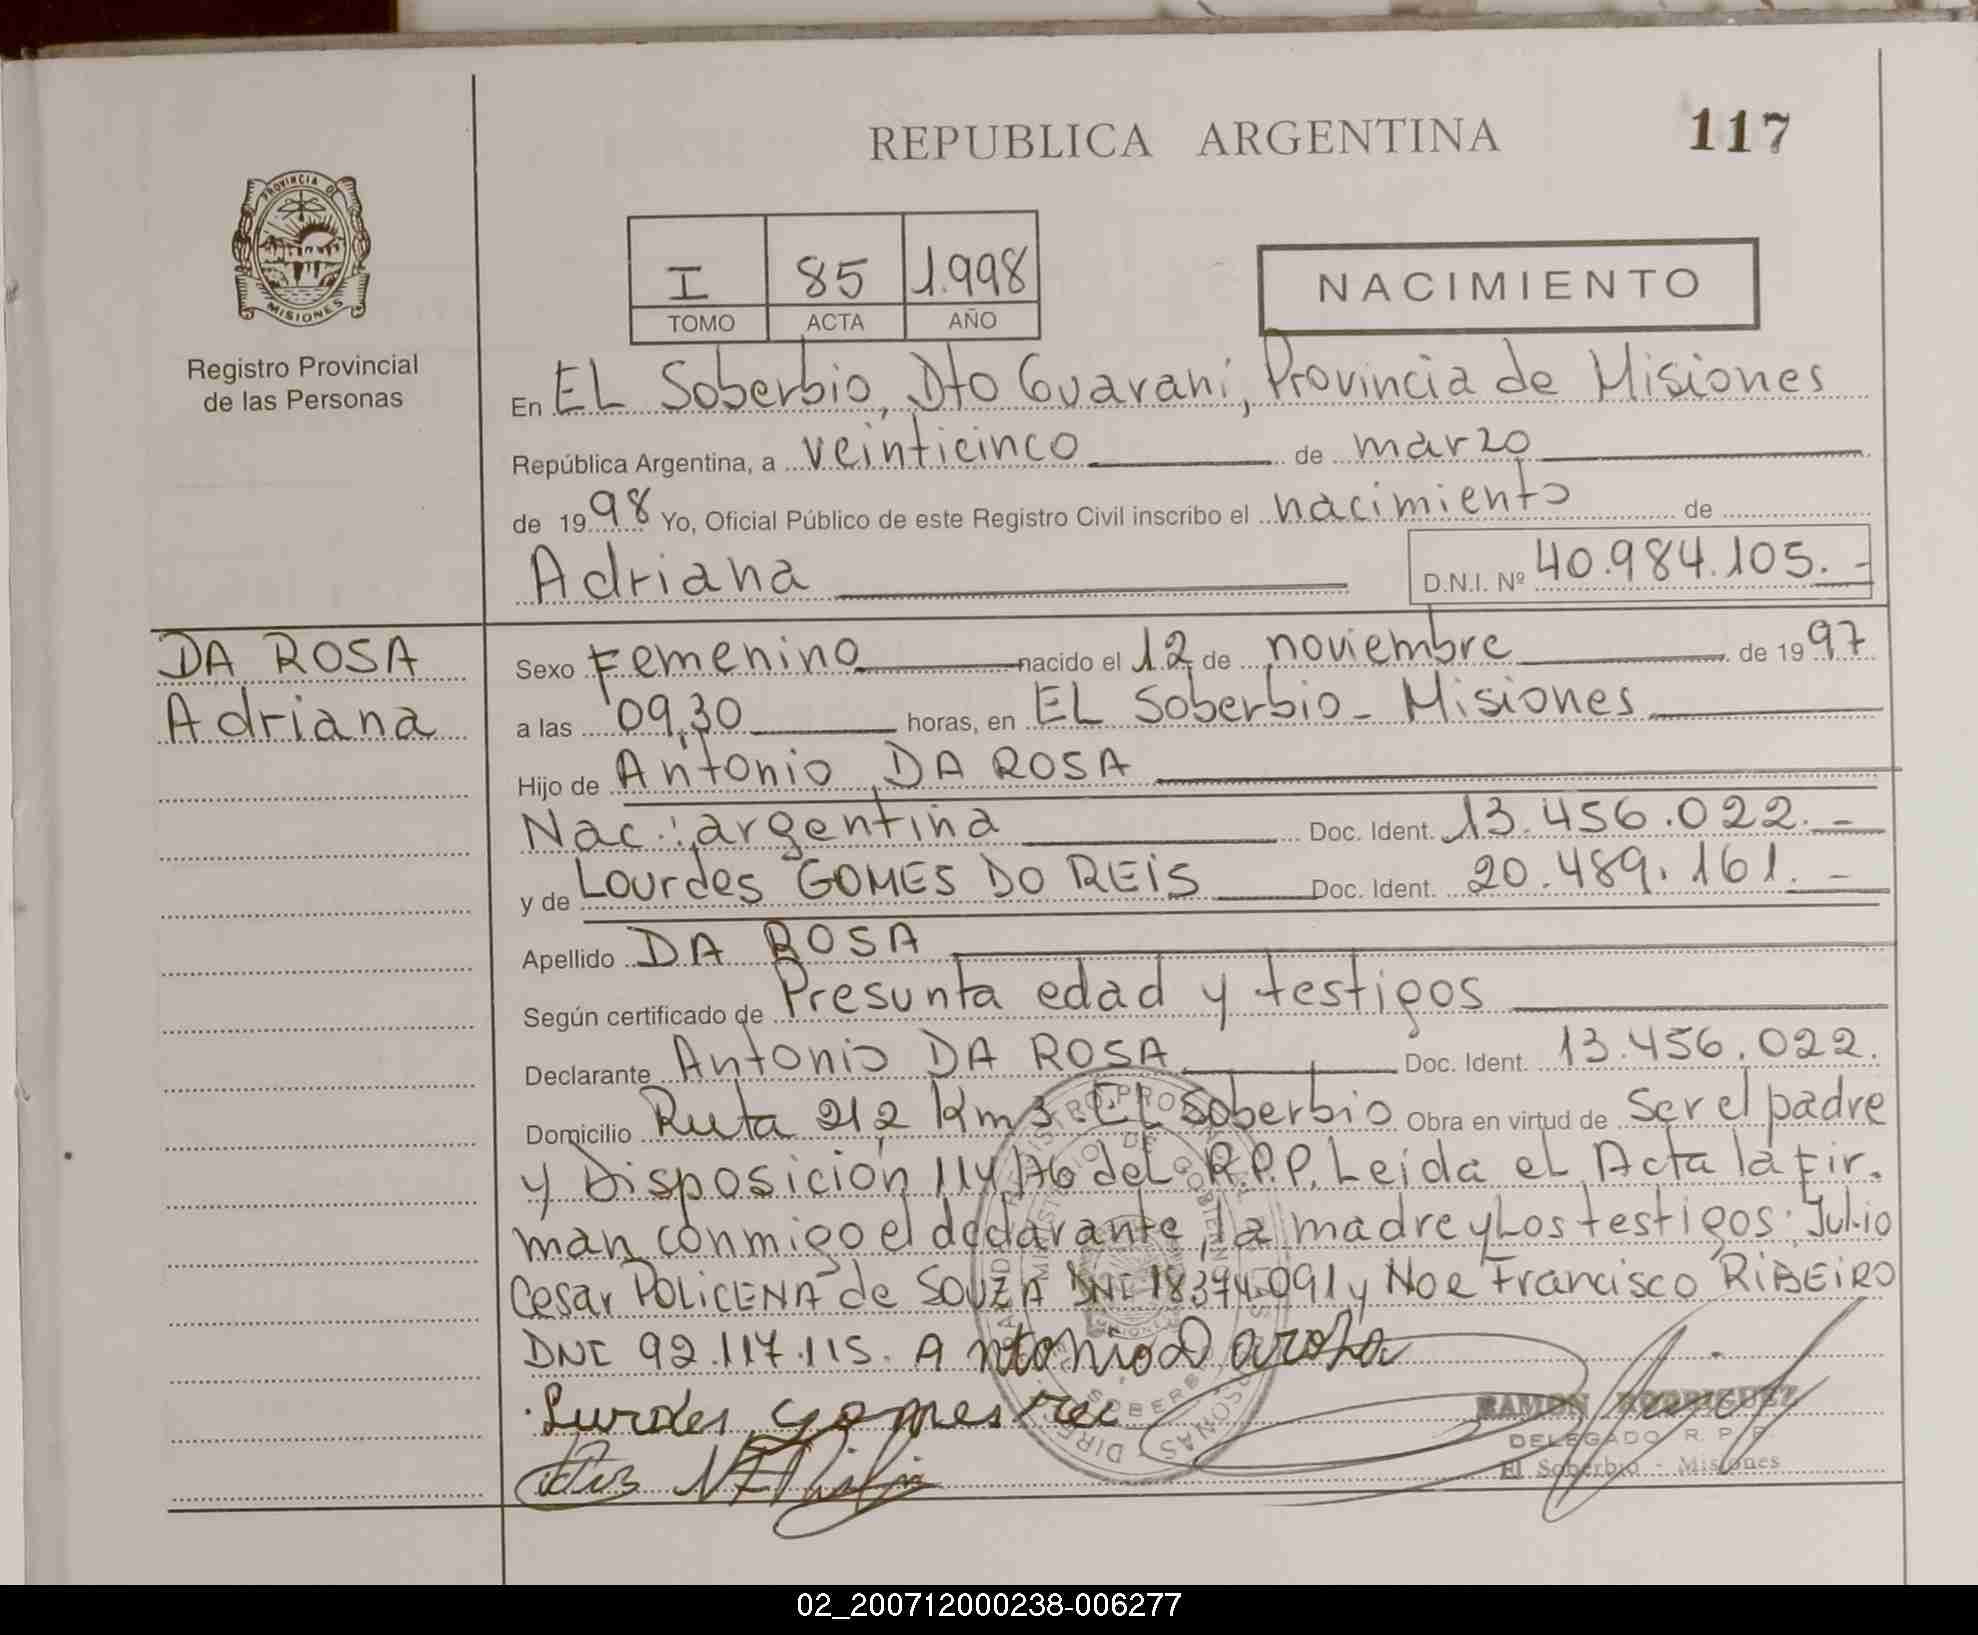 REPUBLICA ARGENTINA
117
PROVINCIA DE
MISIONES
Registro Provincial
de las Personas
I 85 1.998
TOMO ACTA AÑO
NACIMIENTO
En EL Soberbio, Dto Guaraní, Provincia de Misiones
República Argentina, a veinticinco de marzo
de 1998 Yo, Oficial Público de este Registro Civil inscribo el nacimiento de
Adriana D.N.I. Nº 40.984.105.-
DA ROSA
Adriana
Sexo Femenino nacido el 12 de noviembre de 1997
a las 09,30 horas, en EL Soberbio - Misiones
Hijo de Antonio DA ROSA
Nac: argentina Doc. Ident. 13.456.022.-
y de Lourdes GOMES DO REIS Doc. Ident. 20.489.161.-
Apellido DA ROSA
Según certificado de Presunta edad y testigos
Declarante Antonio DA ROSA Doc. Ident. 13.456.022.
Domicilio Ruta 212 Km 3 EL Soberbio Obra en virtud de ser el padre
y Disposición 114/76 del R.P.P. Leida el Acta la fir.
man conmigo el declarante, la madre y Los testigos: Julio
Cesar POLICENA de SOUZA DNI 18.374.091 y Noe Francisco RIBEIRO
DNI 92.117.115. Antonio Darosa
Lurdes gomes rei
RAMON RODRIGUEZ
DELEGADO R. P. P.
El Soberbio - Misiones
02_200712000238-006277